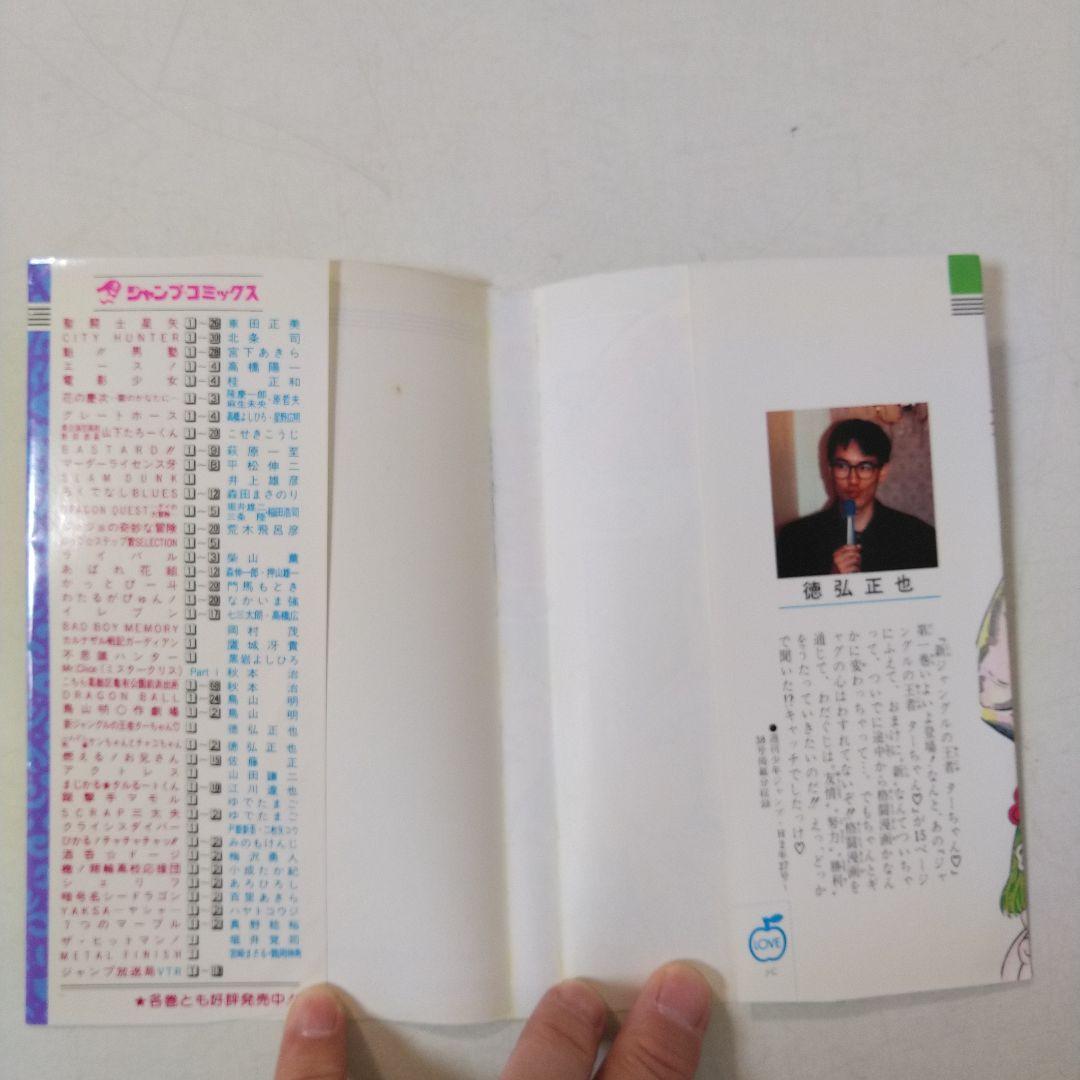 ジャンプ・コミックス
聖闘士星矢 1～26 車田正美
CITY HUNTER 1～30 北条司
魁!!男塾 1～28 宮下あきら
エース! 1～4 高橋陽一
電影少女 1～4 桂正和
花の慶次 1～3 隆慶一郎・原哲夫 麻生未央
グレートホース 1～4 高橋よしひろ・星野広明
山下たろーくん 1～20 こせきこうじ
BASTARD!! 1～9 萩原一至
マーダーライセンス牙 1～8 平松伸二
SLAM DUNK 1 井上雄彦
ろくでなしBLUES 1～12 森田まさのり
DRAGON QUEST 1～5 堀井雄二・稲田浩司 三条陸
ジョジョの奇妙な冒険 1～20 荒木飛呂彦
ホップ☆ステップ賞SELECTION 1～5
ライバル 1～3 柴山薫
あばれ花組 1～12 森伸一郎・押山雄一
かっとび一斗 1～20 門馬もとき
わたるがぴゅん! 1～20 なかいま強
イレブン 1～17 七三太朗・高橋広
BAD BOY MEMORY 1 岡村茂
カルナザル戦記ガーディアン 1 鷹城冴貴
不思議ハンター 1 黒岩よしひろ
Mr.Clice(ミスタークリス) Part 1 秋本治
こちら葛飾区亀有公園前派出所 1～68 秋本治
DRAGON BALL 1～24 鳥山明
鳥山明○作劇場 1～2 鳥山明
新ジャングルの王者ターちゃん♡ 1 徳弘正也
ケンちゃんとチャコちゃん 1～2 徳弘正也
燃える!お兄さん 1～15 佐藤正
アクトレス 1 山田謙二
まじかる★タルるートくん 1～10 江川達也
蹴撃手マモル 1 ゆでたまご
SCRAP三太夫 1～2 ゆでたまご
クライシスダイバー 1
ひかる!チャチャチャッ!! 1～2 みのもけんじ
酒呑☆ドージ 1～2 梅沢勇人
轟!翔輪高校応援団 1～2 小成たか紀
シェリフ 1～2 あろひろし
暗号名シードラゴン 1～2 百里あきら
YAKSA―ヤシャ― 1～2 ハヤトコウジ
7つのマーブル 1～2 真野絵裕
ザ・ヒットマン! 1 堀井覚司
METAL FINISH 1 宮崎まさる・鶴岡伸寿
ジャンプ放送局VTR 1～13
★各巻とも好評発売中!
徳弘正也
『新ジャングルの王者 ターちゃん♡』
第一巻いよいよ登場!なんと、あのページ
ングルの王者 ターちゃん♡』が15ページ
にふえて、おまけに〝新〟なんてついちゃ
って、ついでに途中から格闘漫画かなん
かに変わっちゃって…。でもちゃんとギ
ャグの心はわすれてないぞ!!格闘漫画を
通じて、わだぐしは〝友情・努力・勝利〟
をうたっていきたいのだ!!えっ、どっか
で聞いた!?キャッチでしたっけ♡
●週刊少年ジャンプ・H2年22号～
30号掲載分収録
LOVE
JC